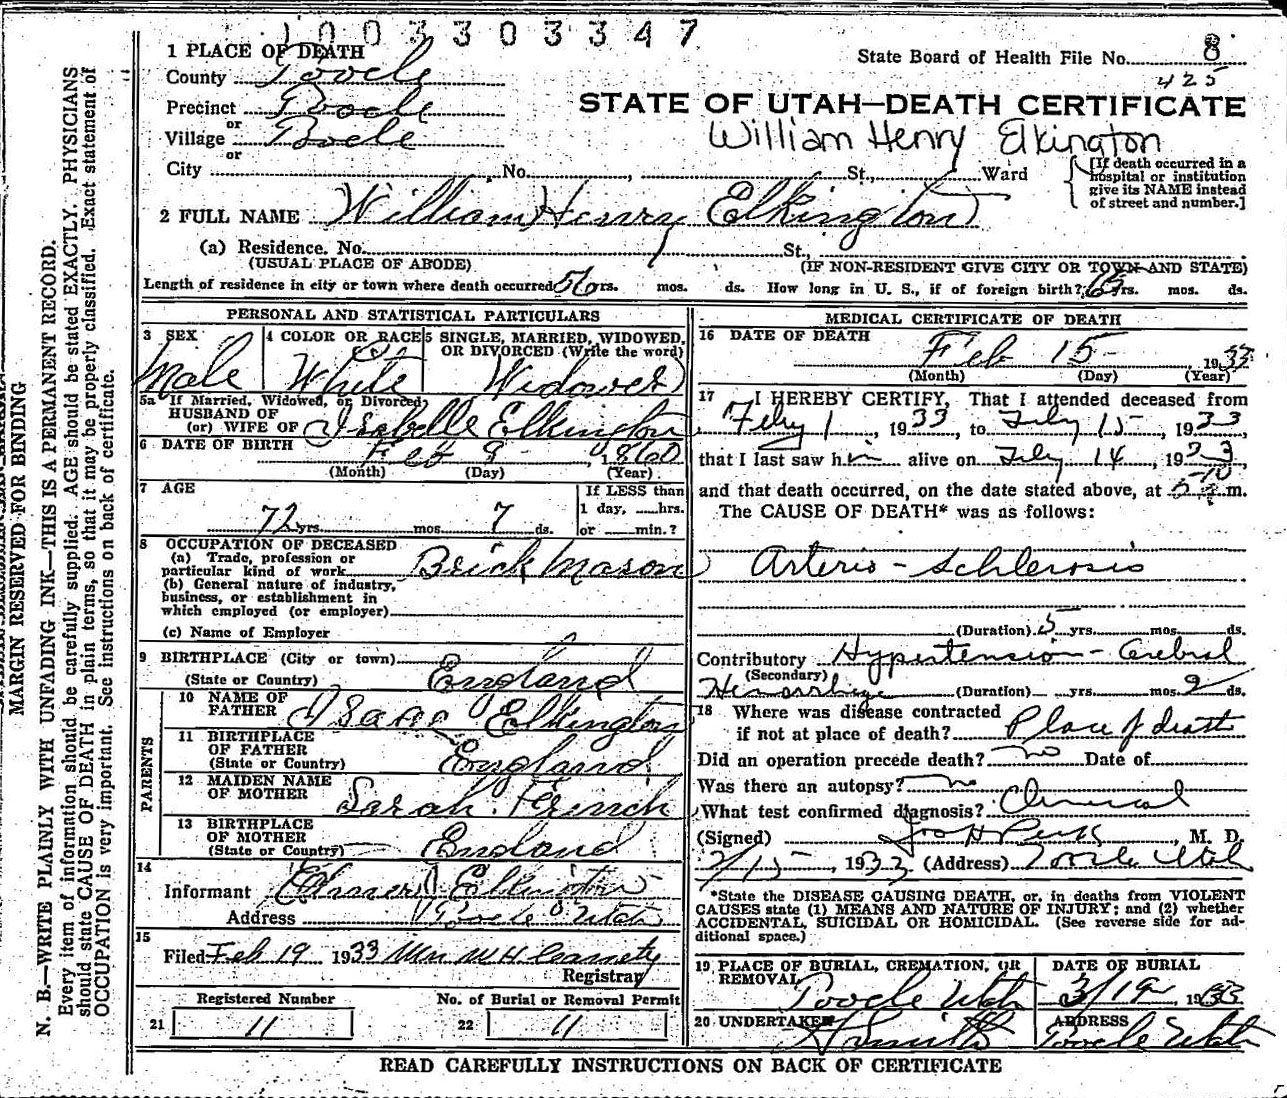 1003303347
1 PLACE OF DEATH
State Board of Health File No. 8
425
County Tooele
Precinct Tooele
or
Village Tooele
or
STATE OF UTAH—DEATH CERTIFICATE
William Henry Elkington
City , No. , St., Ward
[If death occurred in a
hospital or institution
give its NAME instead
of street and number.]
2 FULL NAME William Henry Elkington
(a) Residence. No. St.,
(USUAL PLACE OF ABODE) (IF NON-RESIDENT GIVE CITY OR TOWN AND STATE)
Length of residence in city or town where death occurred 56 yrs. mos. ds. How long in U. S., if of foreign birth? 63 yrs. mos. ds.
PERSONAL AND STATISTICAL PARTICULARS
3 SEX
Male
4 COLOR OR RACE
White
5 SINGLE, MARRIED, WIDOWED,
OR DIVORCED (Write the word)
Widower
5a If Married, Widowed, or Divorced
HUSBAND OF
(or) WIFE OF Isabelle Elkington
6 DATE OF BIRTH Feb 8 1860
(Month) (Day) (Year)
7 AGE
72 yrs. mos. 7 ds.
If LESS than
1 day, hrs.
or min.?
8 OCCUPATION OF DECEASED
(a) Trade, profession or
particular kind of work Brick Mason
(b) General nature of industry,
business, or establishment in
which employed (or employer)
(c) Name of Employer
9 BIRTHPLACE (City or town)
(State or Country) England
PARENTS
10 NAME OF
FATHER Isaac Elkington
11 BIRTHPLACE
OF FATHER
(State or Country) England
12 MAIDEN NAME
OF MOTHER Sarah French
13 BIRTHPLACE
OF MOTHER
(State or Country) England
14
Informant Elkington
Address Tooele Utah
15
Filed Feb 19 1933
Registrar
Registered Number
21 11
No. of Burial or Removal Permit
22 11
MEDICAL CERTIFICATE OF DEATH
16 DATE OF DEATH
Feb 15 1933
(Month) (Day) (Year)
17 I HEREBY CERTIFY, That I attended deceased from
Feby 1, 1933, to Feby 15, 1933,
that I last saw him alive on Feby 14, 1933,
and that death occurred, on the date stated above, at m.
The CAUSE OF DEATH* was as follows:
Arterio-Schlerosis
(Duration) 5 yrs. mos. ds.
Contributory Hypertension - Cerebral
(Secondary)
Hemorrhage (Duration) yrs. mos. 2 ds.
18 Where was disease contracted
if not at place of death? Place of death
Did an operation precede death? no Date of
Was there an autopsy? no
What test confirmed diagnosis? Clinical
(Signed) , M. D.
2/15 1933 (Address) Tooele Utah
*State the DISEASE CAUSING DEATH, or, in deaths from VIOLENT
CAUSES state (1) MEANS AND NATURE OF INJURY; and (2) whether
ACCIDENTAL, SUICIDAL OR HOMICIDAL. (See reverse side for ad-
ditional space.)
19 PLACE OF BURIAL, CREMATION, OR
REMOVAL
Tooele Utah
DATE OF BURIAL
1933
20 UNDERTAKER
ADDRESS
Tooele Utah
READ CAREFULLY INSTRUCTIONS ON BACK OF CERTIFICATE
MARGIN RESERVED FOR BINDING
N. B.—WRITE PLAINLY WITH UNFADING INK—THIS IS A PERMANENT RECORD.
Every item of information should be carefully supplied. AGE should be stated EXACTLY. PHYSICIANS
should state CAUSE OF DEATH in plain terms, so that it may be properly classified. Exact statement of
OCCUPATION is very important. See instructions on back of certificate.